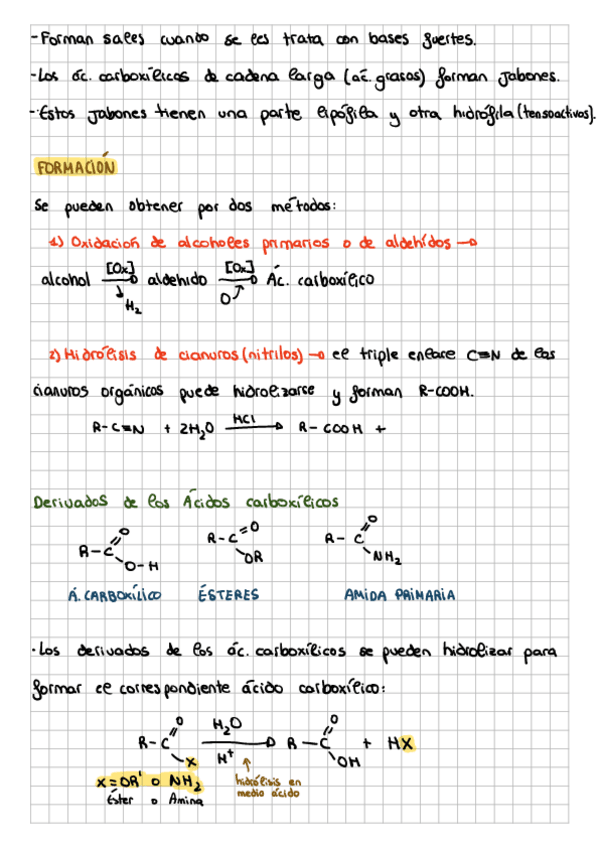 -Forman sales cuando se les trata con bases fuertes.
-Los ác. carboxílicos de cadena larga (ác. grasos) forman jabones.
-Estos jabones tienen una parte lipófila y otra hidrófila (tensoactivos).
FORMACIÓN
Se pueden obtener por dos métodos:
1) Oxidación de alcoholes primarios o de aldehídos →
alcohol [Ox]→ aldehido [Ox]→ Ác. carboxílico
H2 O
2) Hidrólisis de cianuros (nitrilos) → el triple enlace C≡N de los
cianuros orgánicos puede hidrolizarse y forman R-COOH.
R-C≡N + 2H2O HCl→ R-COOH +
Derivados de los Ácidos carboxílicos
R-C=O O-H R-C=O OR R-C=O NH2
Á. CARBOXÍLICO ÉSTERES AMIDA PRIMARIA
·Los derivados de los ác. carboxílicos se pueden hidrolizar para
formar el correspondiente ácido carboxílico:
R-C=O X H2O H+ → R-C=O OH + HX
X=OR' o NH2 hidrólisis en
Éster o Amina medio ácido